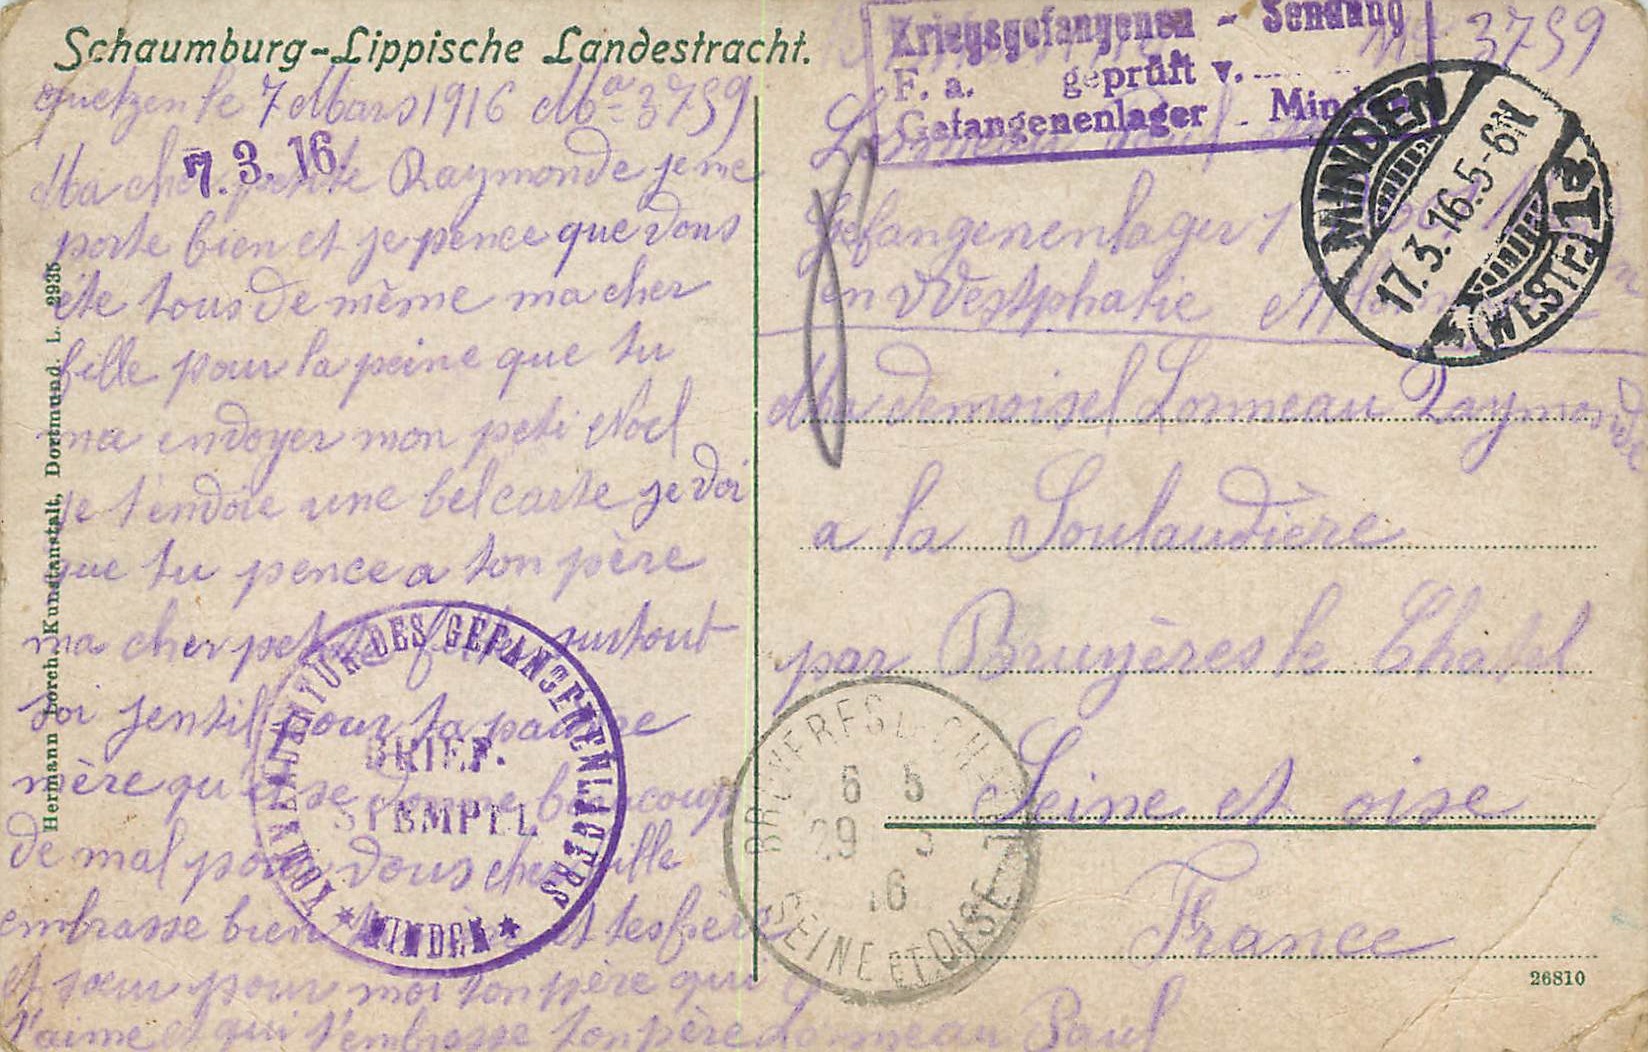 Schaumburg-Lippische Landestracht.
le 7 Mars 1916 Ma 3759
7.3.16
Ma cher petite Raymonde je me
porte bien et je pence que vous
éte tous de même ma cher
fille pour la peine que tu
ma envoyer mon peti Noel
je t'envoie une bel carte je voi
que tu pence a ton père
ma cher petite fille surtout
soi jentil pour ta pauvre
mère qui se donne beaucoup
de mal pour vous cher fille
embrasse bien et tes frère
et sœur pour moi ton père qui
t'aime et qui t'embrasse ton père Lormeau Paul
Hermann Lorch, Kunstanstalt, Dortmund. L. 2935
KOMMANDANTUR DES GEFANGENENLAGERS
BRIEF-
STEMPEL
* MINDEN *
Kriegsgefangenen - Sendung
F. a. geprüft v.
Gefangenenlager - Minden
3759
Lormeau Paul
Gefangenenlager 1
en Westphalie
MINDEN
17.3.16.5-6N
* (WESTF.) 1a
Mademoisel Lormeau Raymonde
a la Soulaudière
par Bruyères le Chatel
Seine et oise
France
BRUYERES-LE-CHATEL
6 5
29 3
16
SEINE ET OISE
26810